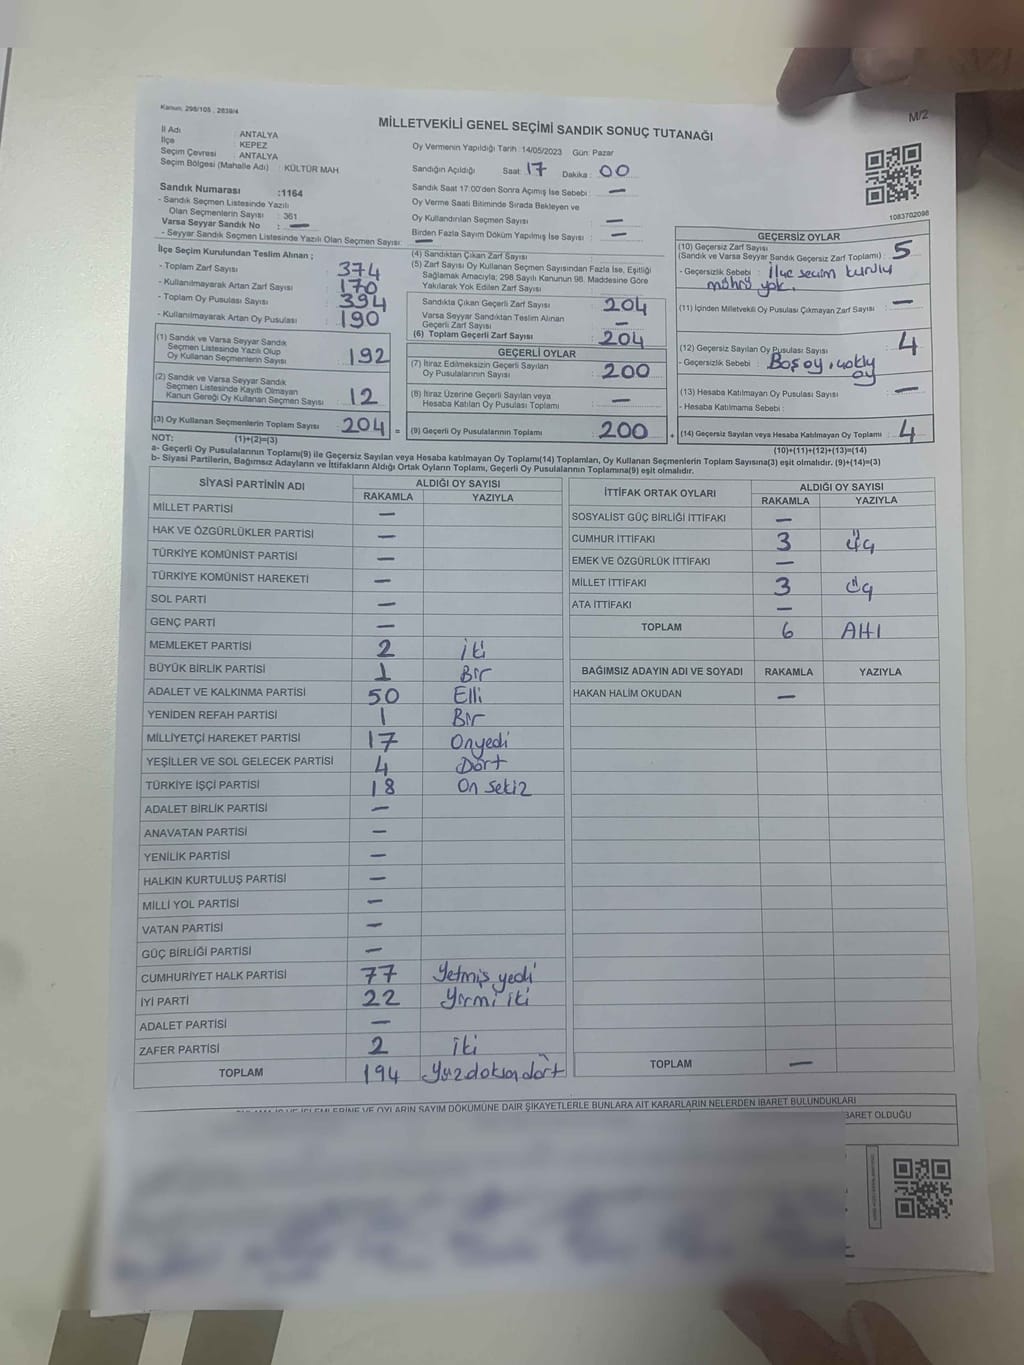 Kanun: 298/105 , 2839/4
M/2
MİLLETVEKİLİ GENEL SEÇİMİ SANDIK SONUÇ TUTANAĞI
İl Adı : ANTALYA
İlçe : KEPEZ
Seçim Çevresi : ANTALYA
Seçim Bölgesi (Mahalle Adı) : KÜLTÜR MAH
Sandık Numarası :1164
- Sandık Seçmen Listesinde Yazılı
Olan Seçmenlerin Sayısı : 361
Varsa Seyyar Sandık No : —
- Seyyar Sandık Seçmen Listesinde Yazılı Olan Seçmen Sayısı: —
Oy Vermenin Yapıldığı Tarih : 14/05/2023 Gün: Pazar
Sandığın Açıldığı Saat: 17 Dakika : 00
Sandık Saat 17:00'den Sonra Açımış İse Sebebi : —
Oy Verme Saati Bitiminde Sırada Bekleyen ve
Oy Kullandırılan Seçmen Sayısı : —
Birden Fazla Sayım Döküm Yapılmış İse Sayısı : —
1083702098
İlçe Seçim Kurulundan Teslim Alınan ;
- Toplam Zarf Sayısı : 374
- Kullanılmayarak Artan Zarf Sayısı : 170
- Toplam Oy Pusulası Sayısı : 394
- Kullanılmayarak Artan Oy Pusulası : 190
(1) Sandık ve Varsa Seyyar Sandık
Seçmen Listesinde Yazılı Olup
Oy Kullanan Seçmenlerin Sayısı : 192
(2) Sandık ve Varsa Seyyar Sandık
Seçmen Listesinde Kayıtlı Olmayan
Kanun Gereği Oy Kullanan Seçmen Sayısı : 12
(3) Oy Kullanan Seçmenlerin Toplam Sayısı : 204 =
(4) Sandıktan Çıkan Zarf Sayısı :
(5) Zarf Sayısı Oy Kullanan Seçmen Sayısından Fazla İse, Eşitliği
Sağlamak Amacıyla; 298 Sayılı Kanunun 98. Maddesine Göre
Yakılarak Yok Edilen Zarf Sayısı :
Sandıkta Çıkan Geçerli Zarf Sayısı : 204
Varsa Seyyar Sandıktan Teslim Alınan
Geçerli Zarf Sayısı : —
(6) Toplam Geçerli Zarf Sayısı : 204
GEÇERLİ OYLAR
(7) İtiraz Edilmeksizin Geçerli Sayılan
Oy Pusulalarının Sayısı : 200
(8) İtiraz Üzerine Geçerli Sayılan veya
Hesaba Katılan Oy Pusulası Toplamı : —
(9) Geçerli Oy Pusulalarının Toplamı : 200 +
GEÇERSİZ OYLAR
(10) Geçersiz Zarf Sayısı
(Sandık ve Varsa Seyyar Sandık Geçersiz Zarf Toplamı) : 5
- Geçersizlik Sebebi : İlçe seçim kurulu
mührü yok.
(11) İçinden Milletvekili Oy Pusulası Çıkmayan Zarf Sayısı : —
(12) Geçersiz Sayılan Oy Pusulası Sayısı : 4
- Geçersizlik Sebebi : Boş oy,
oy
(13) Hesaba Katılmayan Oy Pusulası Sayısı : —
- Hesaba Katılmama Sebebi :
(14) Geçersiz Sayılan veya Hesaba Katılmayan Oy Toplamı : 4
NOT: (1)+(2)=(3)
(10)+(11)+(12)+(13)=(14)
a- Geçerli Oy Pusulalarının Toplamı(9) ile Geçersiz Sayılan veya Hesaba katılmayan Oy Toplamı(14) Toplamları, Oy Kullanan Seçmenlerin Toplam Sayısına(3) eşit olmalıdır. (9)+(14)=(3)
b- Siyasi Partilerin, Bağımsız Adayların ve İttifakların Aldığı Ortak Oyların Toplamı, Geçerli Oy Pusulalarının Toplamına(9) eşit olmalıdır.
SİYASİ PARTİNİN ADI ALDIĞI OY SAYISI
RAKAMLA YAZIYLA
MİLLET PARTİSİ —
HAK VE ÖZGÜRLÜKLER PARTİSİ —
TÜRKİYE KOMÜNİST PARTİSİ —
TÜRKİYE KOMÜNİST HAREKETİ —
SOL PARTİ —
GENÇ PARTİ —
MEMLEKET PARTİSİ 2 iki
BÜYÜK BİRLİK PARTİSİ 1 Bir
ADALET VE KALKINMA PARTİSİ 50 Elli
YENİDEN REFAH PARTİSİ 1 Bir
MİLLİYETÇİ HAREKET PARTİSİ 17 Onyedi
YEŞİLLER VE SOL GELECEK PARTİSİ 4 Dört
TÜRKİYE İŞÇİ PARTİSİ 18 On sekiz
ADALET BİRLİK PARTİSİ —
ANAVATAN PARTİSİ —
YENİLİK PARTİSİ —
HALKIN KURTULUŞ PARTİSİ —
MİLLİ YOL PARTİSİ —
VATAN PARTİSİ —
GÜÇ BİRLİĞİ PARTİSİ —
CUMHURİYET HALK PARTİSİ 77 Yetmiş yedi
İYİ PARTİ 22 Yirmi iki
ADALET PARTİSİ —
ZAFER PARTİSİ 2 iki
TOPLAM 194 Yüzdoksandört
İTTİFAK ORTAK OYLARI ALDIĞI OY SAYISI
RAKAMLA YAZIYLA
SOSYALİST GÜÇ BİRLİĞİ İTTİFAKI —
CUMHUR İTTİFAKI 3 üç
EMEK VE ÖZGÜRLÜK İTTİFAKI —
MİLLET İTTİFAKI 3 üç
ATA İTTİFAKI —
TOPLAM 6 Altı
BAĞIMSIZ ADAYIN ADI VE SOYADI RAKAMLA YAZIYLA
HAKAN HALİM OKUDAN —
TOPLAM —
İŞLEMLERİNE VE OYLARIN SAYIM DÖKÜMÜNE DAİR ŞİKAYETLERLE BUNLARA AİT KARARLARIN NELERDEN İBARET BULUNDUKLARI
İBARET OLDUĞU